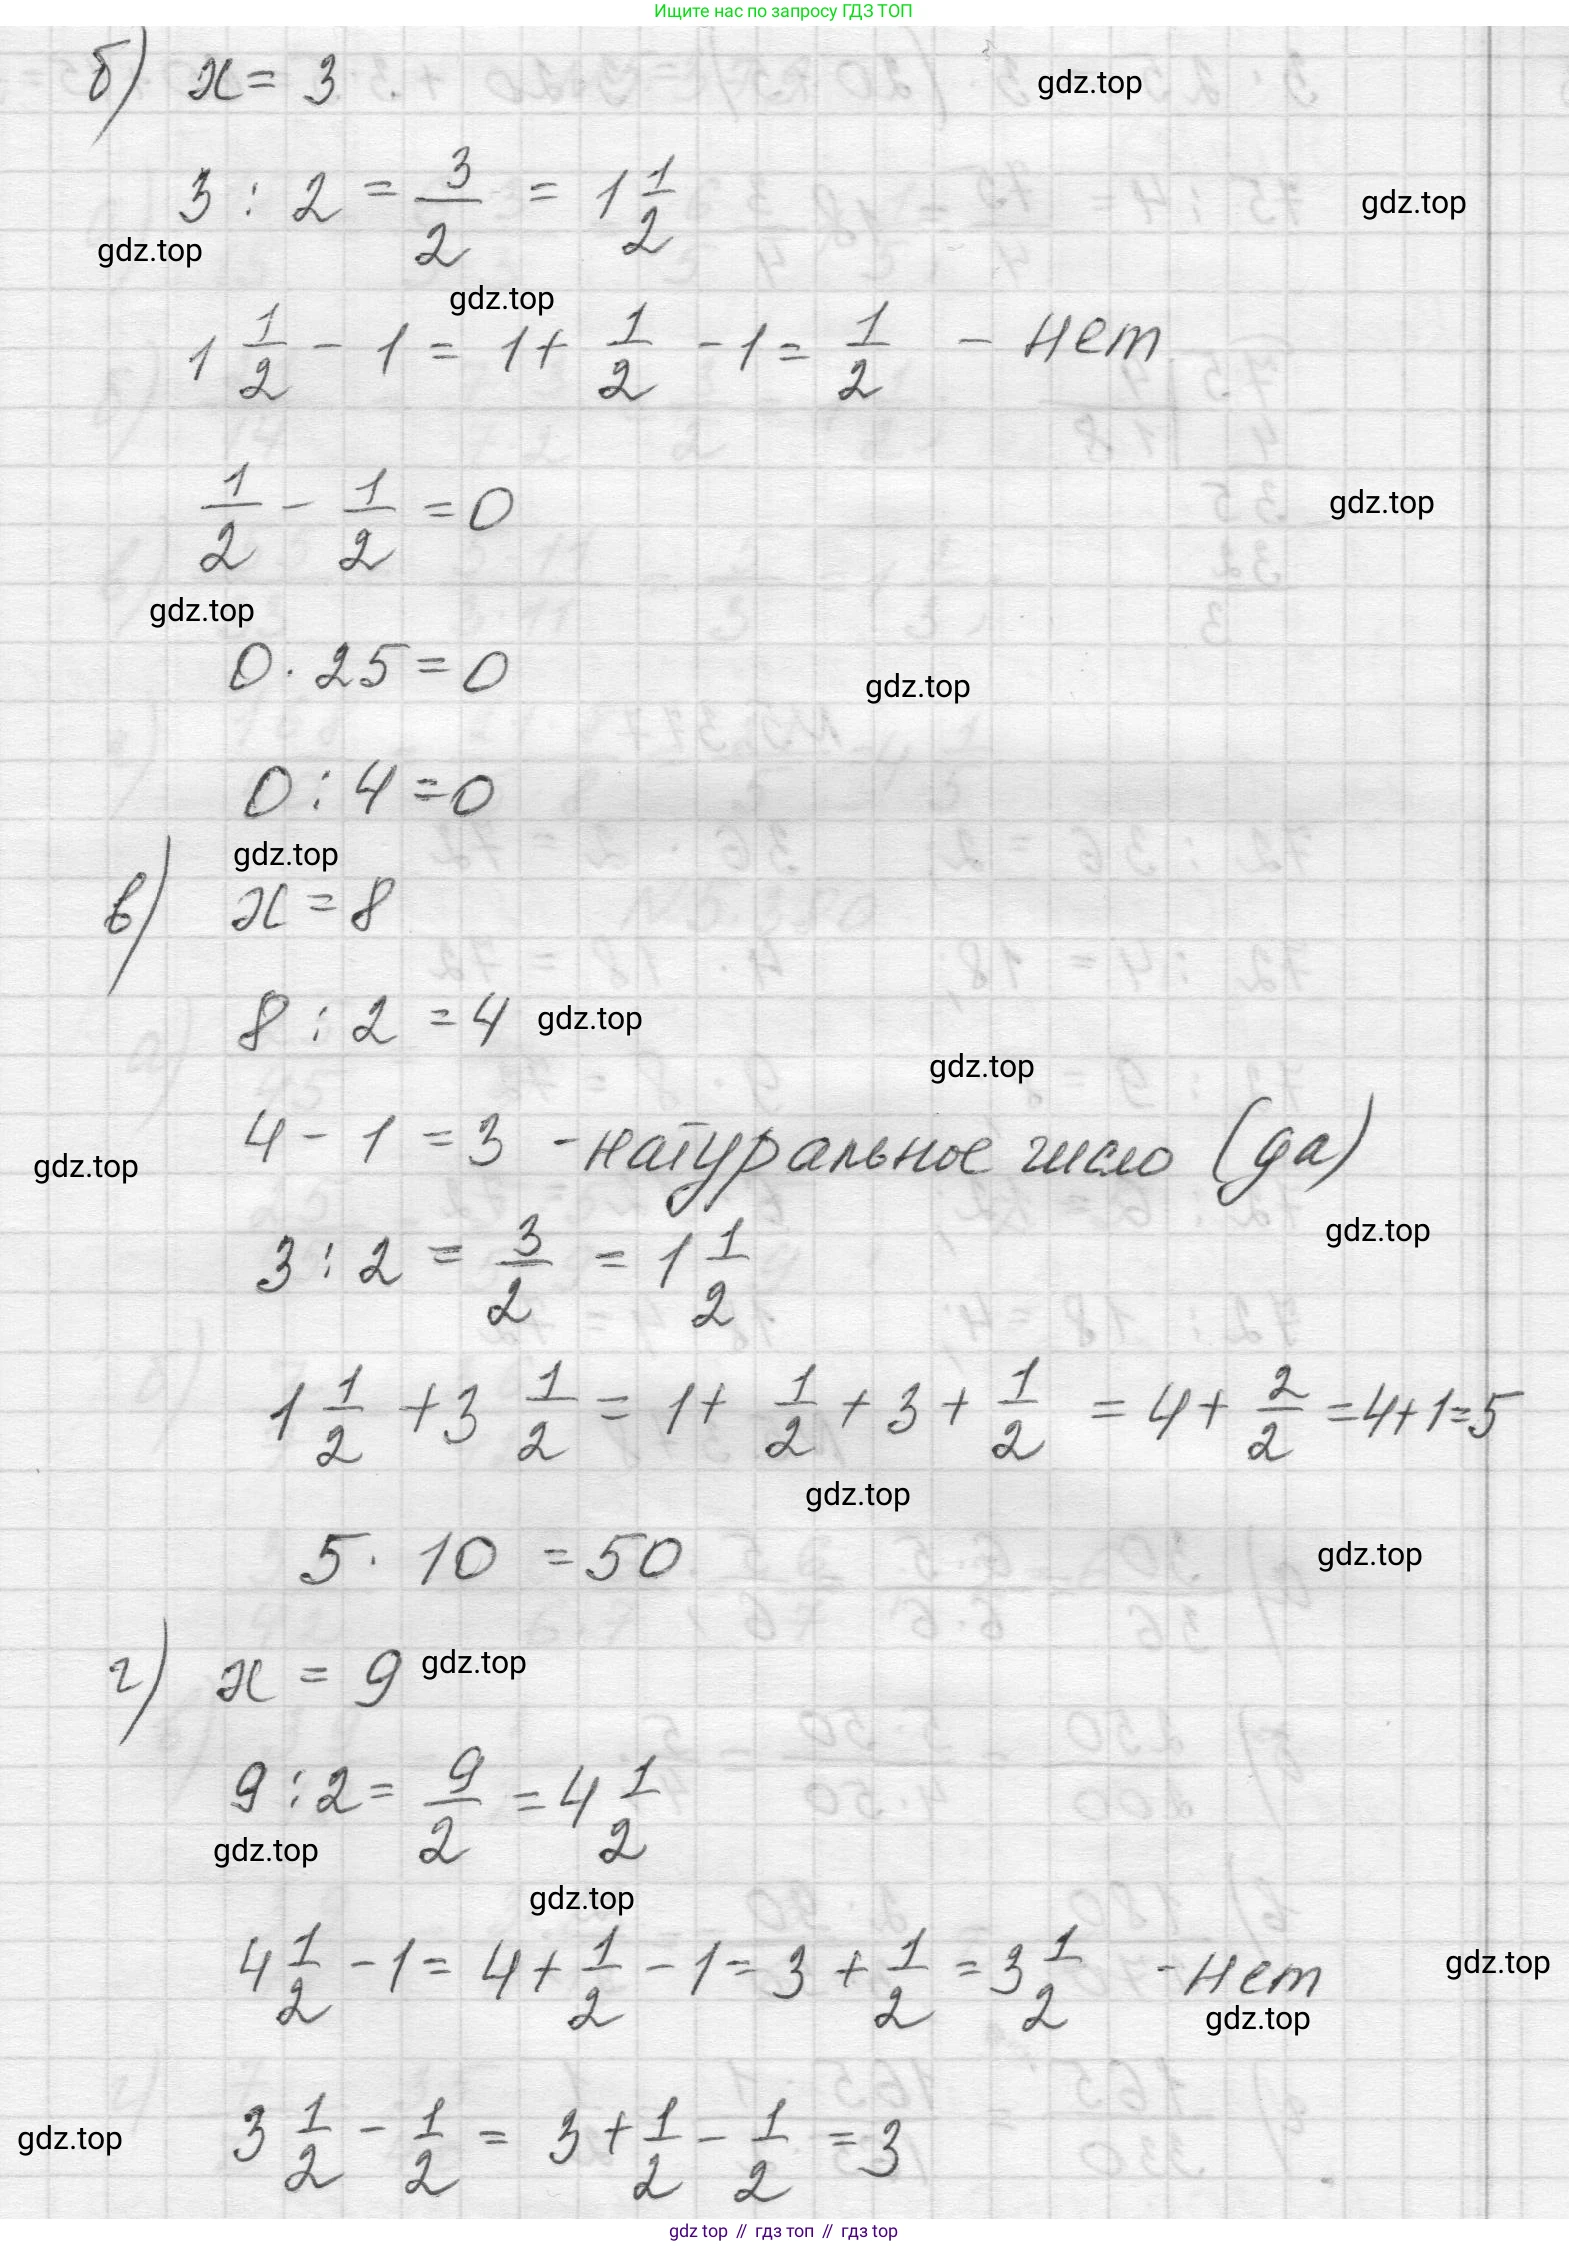 Ищите нас по запросу ГДЗ ТОП
б) x = 3
gdz.top
3 : 2 = 3/2 = 1 1/2
gdz.top
gdz.top
gdz.top
1 1/2 - 1 = 1 + 1/2 - 1 = 1/2 - нет
1/2 - 1/2 = 0
gdz.top
gdz.top
0 · 25 = 0
gdz.top
0 : 4 = 0
gdz.top
в) x = 8
8 : 2 = 4
gdz.top
gdz.top
4 - 1 = 3 - натуральное число (да)
gdz.top
gdz.top
3 : 2 = 3/2 = 1 1/2
1 1/2 + 3 1/2 = 1 + 1/2 + 3 + 1/2 = 4 + 2/2 = 4 + 1 = 5
gdz.top
5 · 10 = 50
gdz.top
г) x = 9
gdz.top
9 : 2 = 9/2 = 4 1/2
gdz.top
gdz.top
4 1/2 - 1 = 4 + 1/2 - 1 = 3 + 1/2 = 3 1/2 - нет
gdz.top
gdz.top
gdz.top
3 1/2 - 1/2 = 3 + 1/2 - 1/2 = 3
gdz top // гдз топ // гдз top